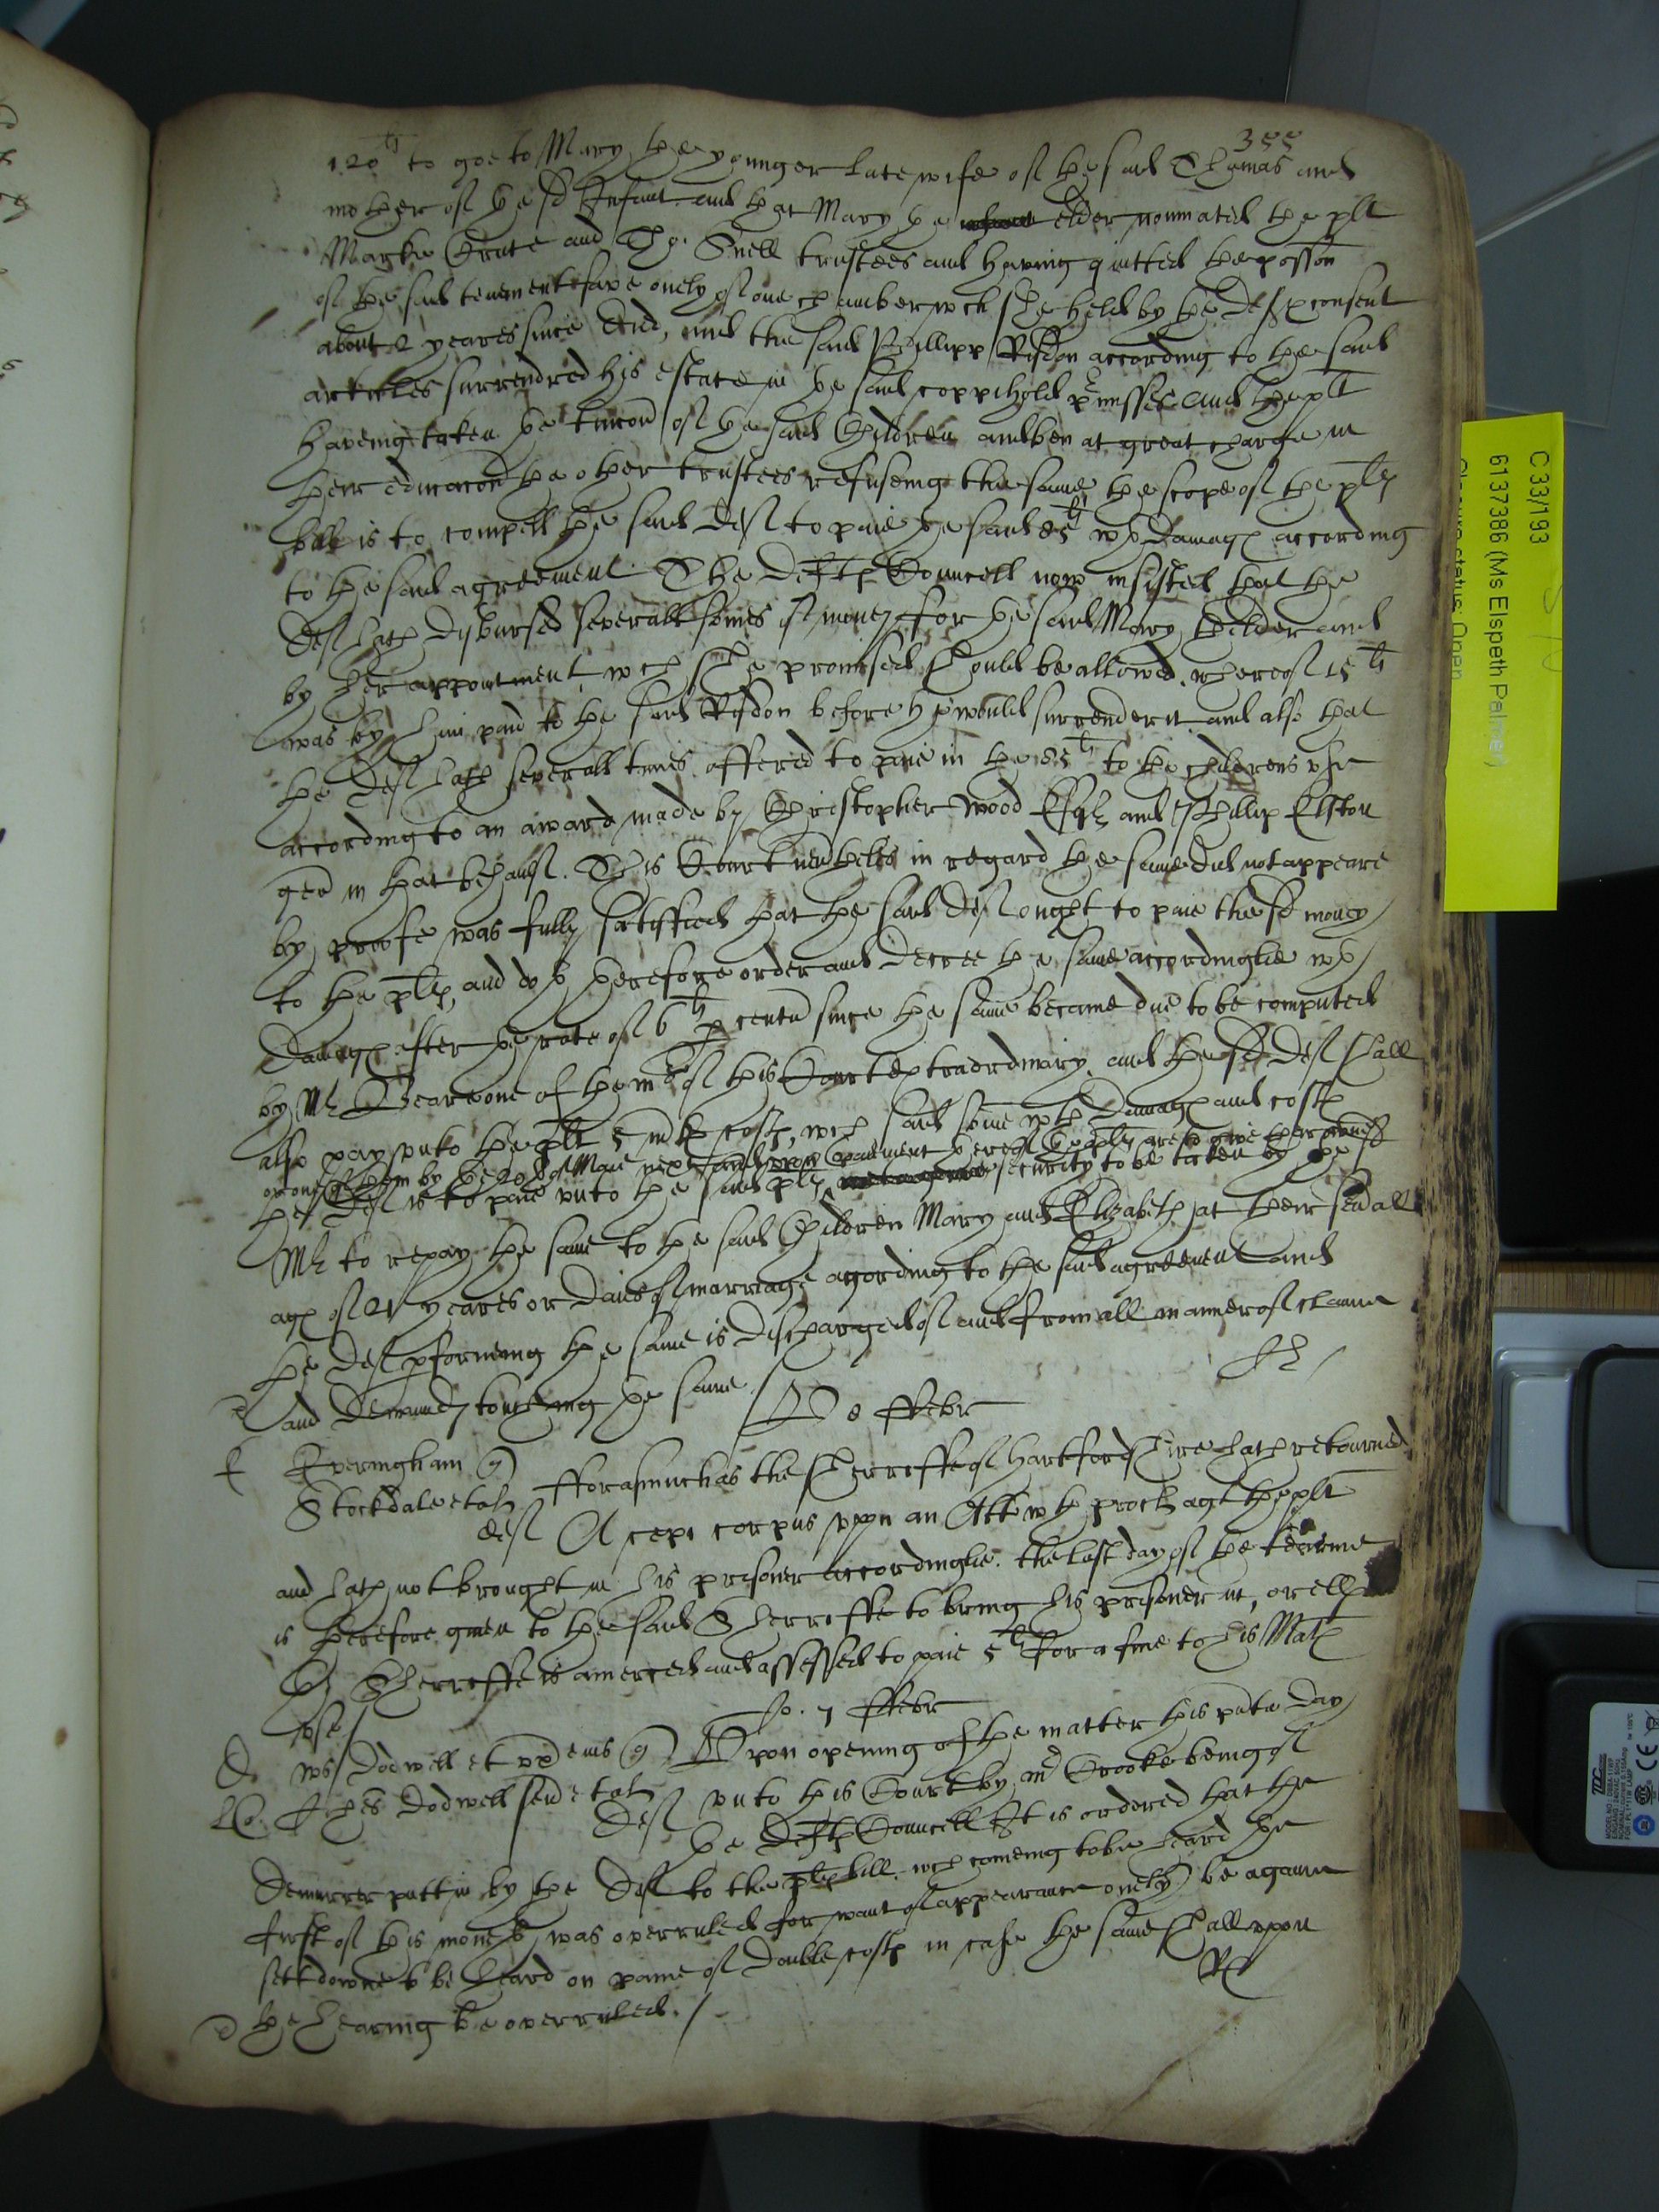 355
120li to goe to Mary the younger late wife of the said Thomas and
mother of the sd Infant and that Mary the elder nominated the plt
Marke Grute and Tho: Snell trustees and having quitted the possion
of the said tenement save onely of one chamber wch she held by the Deftes consent
about 2 yeares since died, and the said Phillipp Risdon according to the said
articles surrendred his estate in the said coppihold pmisses and the plt
haveing taken the tuicon of the said Children and ben at great charge in
their educacon the other trustees refuseing the same, the scope of the pltes
bill is to compell the said Deft to paie the said 85li wth Damages according
to the said agreement. The Deftes Councell now insisted that the
Deft hath disbursed severall somes of money for the said Mary thelder and
by her appointment, wch she promised should be allowed, whereof 15li
was by him paid to the said Risdon before he would surrender it and also that
the Deft hath severall times offered to paie in the 85li to the childrens use
according to an award made by Christopher Wood Esqr and Phillip Elston
gen in that behalf. This Court neutheless in regard the same did not appeare
by proofe was fully satisfied that the said Deft ought to paie the sd money
to the pltes, and doth therefore order and decree the same accordinglie wth
Damages after the rate of 6li p centu since the same became due to be computed
by Mr Page one of the mrs of this Court extraordinary, and the sd Deft shall
also pay unto the plt 5 mkes costes, wch said some wth Damages and costes
or one of them by the 20th of Maie next and upon paiement thereof the pltes are to give their owne
the Deft is to paie unto the said pltes security to be taken by the sd
Mr to repay the same to the said Children Mary and Elizabeth at their seuall
ages of 21 yeares or daies of marriage acording to the said agreement and
the Deft pformeing the same is discharged of and from all manner of claime
and Demands touching the same
8 ffebr
Everingham q
Stockdale et al
deft
fforasmuch as the Sherriffe of Hartfordshire hath retourned
A cepi corpus uppon an Att wth procl agt the plt
and hath not brought in his prisoner accordinglie. the last day of the tearme
is therefore given to the said Sherriffe to bring his prisoner in, or ells
the Sherriffe is amerced and assessed to paie 5li for a fine to his Mates
use
7 ffebr
Ws Dodwell et ux eius q
Dodwell sen et al
Deft
Upon opening of the matter this pnte day
unto this Court by mr Crooke being of
the Deftes Councell It is ordered that the
Demurrer putt in by the Deft to the pltes bill wch comeing to be heard the
first of this moneth was overruled for want of appearance onely be againe
sett downe to be heard on paine of double costes in case the same shall upon
the hearing be overruled.
C 33/193
6137386 (Ms Elspeth Palmer)